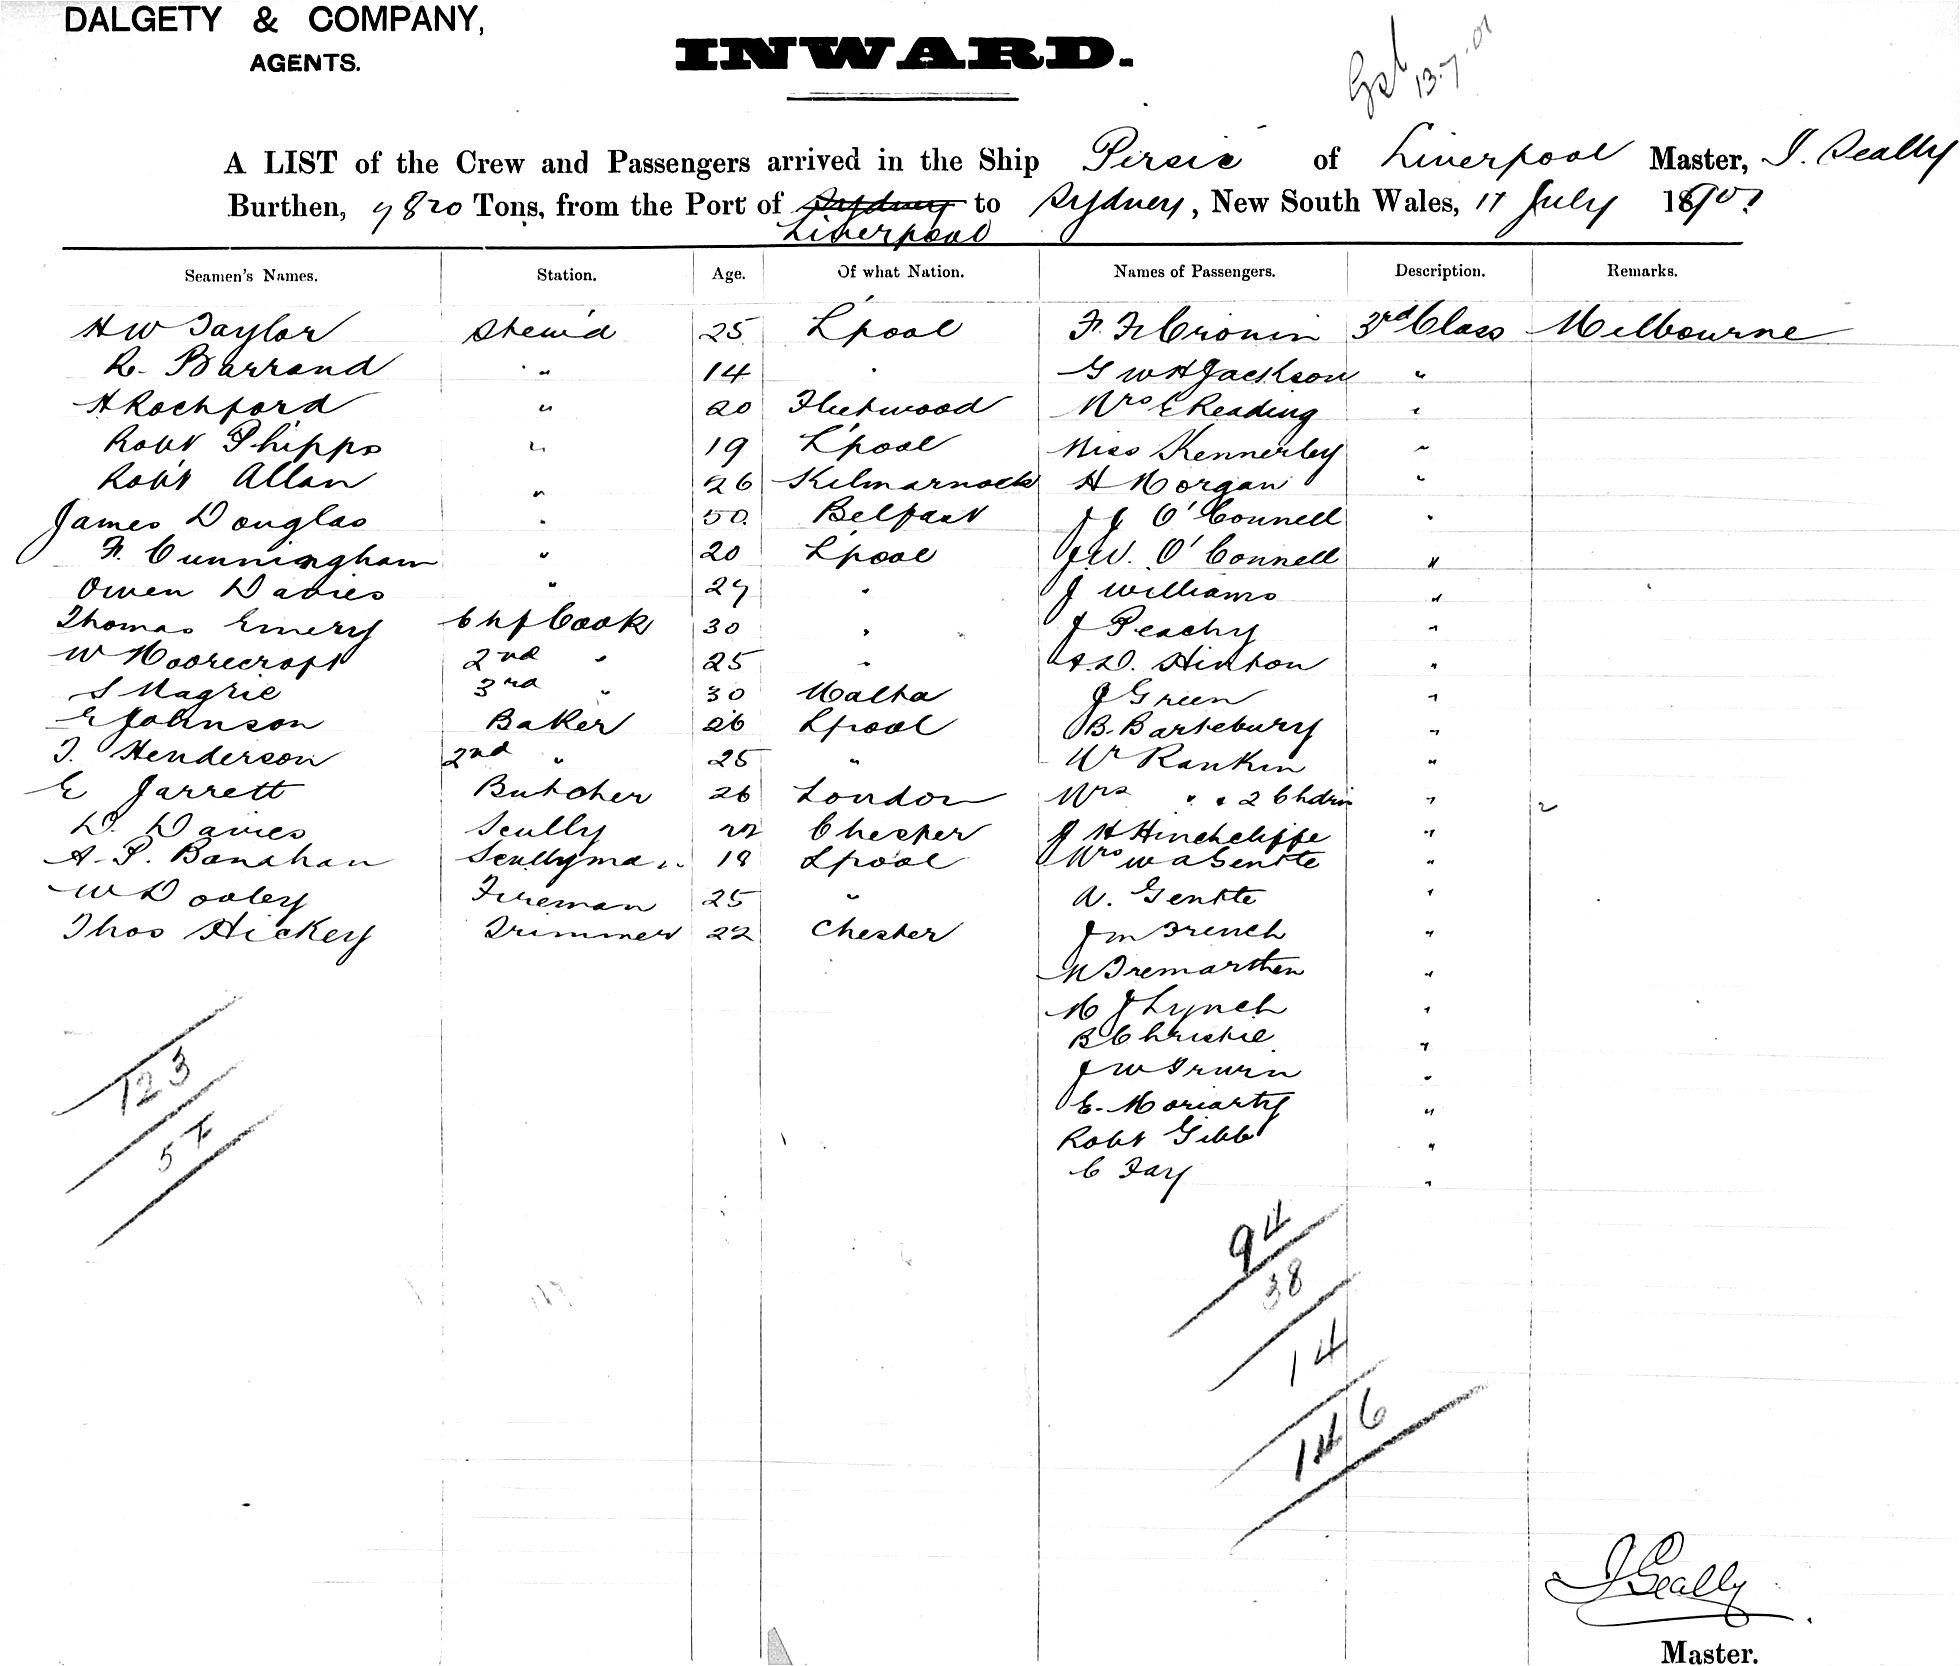 DALGETY & COMPANY,
AGENTS.
INWARD.
13-7-01
A LIST of the Crew and Passengers arrived in the Ship Persic of Liverpool Master, J. Seally
Burthen, 7820 Tons, from the Port of Sydney to Sydney, New South Wales, 17 July 1901
Liverpool
Seamen's Names. Station. Age. Of what Nation. Names of Passengers. Description. Remarks.
H W Taylor Stew'd 25 L'pool F. F. Cronin 3rd Class Melbourne
R. Barrand " 14 " G W H Jackson "
H Rochford " 20 Fleetwood Mrs E Reading "
Robt Phipps " 19 L'pool Miss Kennerley "
Robt Allan " 26 Kilmarnock H Morgan "
James Douglas " 50 Belfast J J O'Connell "
F. Cunningham " 20 L'pool J.W. O'Connell "
Owen Davies " 27 " J Williams "
Thomas Emery Chf Cook 30 " J Peachy "
W Moorecroft 2nd " 25 " A.D. Hinton "
S Magrie 3rd " 30 Malta J Green "
E Johnson Baker 26 Lpool B. Bartebury "
T. Henderson 2nd " 25 " Mr Rankin "
E Jarrett Butcher 26 London Mrs " & 2 Chdrn "
D. Davies Scully 22 Chester J H Hinchcliffe "
A. P. Banahan Scullyman 18 Lpool Mrs W A Gentte "
W Dooley Fireman 25 " A. Gentte "
Thos Hickey Trimmer 22 Chester J M French "
M Tremarthen "
M J Lynch "
B Christie "
J W Irwin "
E. Moriarty "
Robt Gibb "
C Fay "
123
57
94
38
14
146
J Seally
Master.